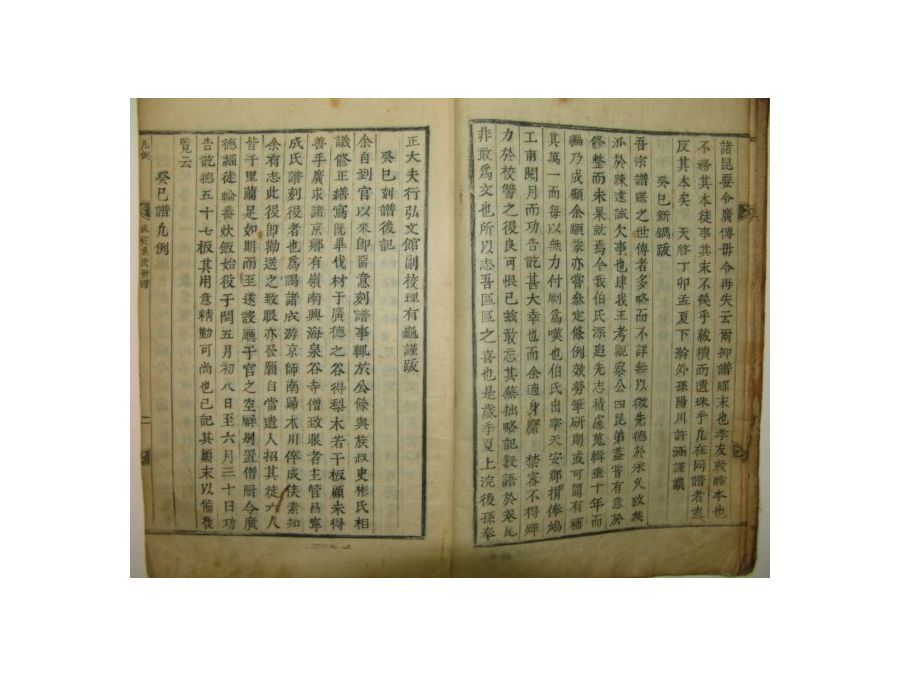 諸昆要令廣傳毋令再失云爾抑譜牒末也孝友敦睦本也
不務其本徒事其末不幾乎藏櫝而遺珠乎凡在同譜者盍
反其本矣 天啓丁卯孟夏下澣外孫陽川許涵謹識
癸巳新鐫跋
吾宗譜牒之世傳者多略而不詳無以徵先德於永久致族
派於疎遠誠欠事也肆我王考觀察公四昆弟蓋嘗有意於
修整而未果就焉今我伯氏深追先志積慮蒐輯垂十年而
編乃成顧余顓蒙亦嘗參定條例效勞筆研則或可謂有補
其萬一而每以無力付剞爲嘆也伯氏出宰天安鄕捐俸鳩
工甫閱月而功告訖甚大幸也而余適身縻 禁客不得殫
力於校讐之役良可悵已玆敢忘其蕪拙略記數語於卷尾
非敢爲文也所以志吾區區之喜也是歲季夏上浣後孫奉
正大夫行弘文館副校理有龜謹跋
癸巳刻譜後記
余自到官以來卽留意刻譜事輒於公餘與族叔史彬氏相
議修正繕寫旣畢伐材于廣德之谷得梨木若干板顧未得
善手廣求諸京鄕有嶺南興海泉谷寺僧致眼者主管昌寧
成氏譜刻役者也爲謁諸成游京師南歸木川倅成侯素知
余有志此役卽勒送之致眼亦發願自當遣人招其徒六人
皆千里繭足如期而至遂設廳于官之空廨剐置僧厨令廣
德緇徒輪番炊飯始役于閏五月初八日至六月三十日功
告訖摠五十七板其用意精勤可尚也已記其顚末以備後
覽云
癸巳譜凡例